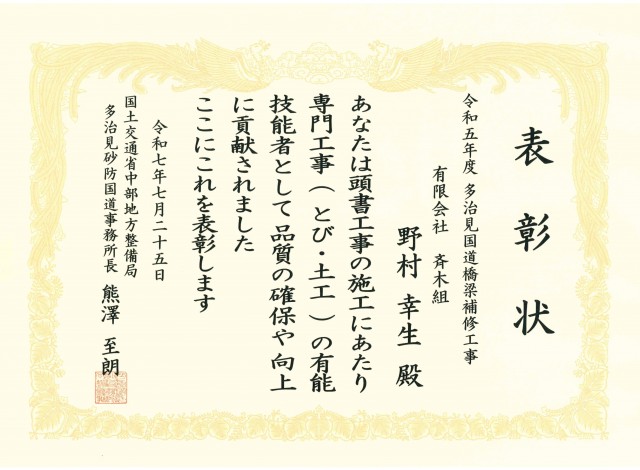 表彰状
令和五年度 多治見国道橋梁補修工事
有限会社 斉木組
野村 幸生 殿
あなたは頭書工事の施工にあたり
専門工事(とび・土工)の有能
技能者として品質の確保や向上
に貢献されました
ここにこれを表彰します
令和七年七月二十五日
国土交通省中部地方整備局
多治見砂防国道事務所長 熊澤 至朗